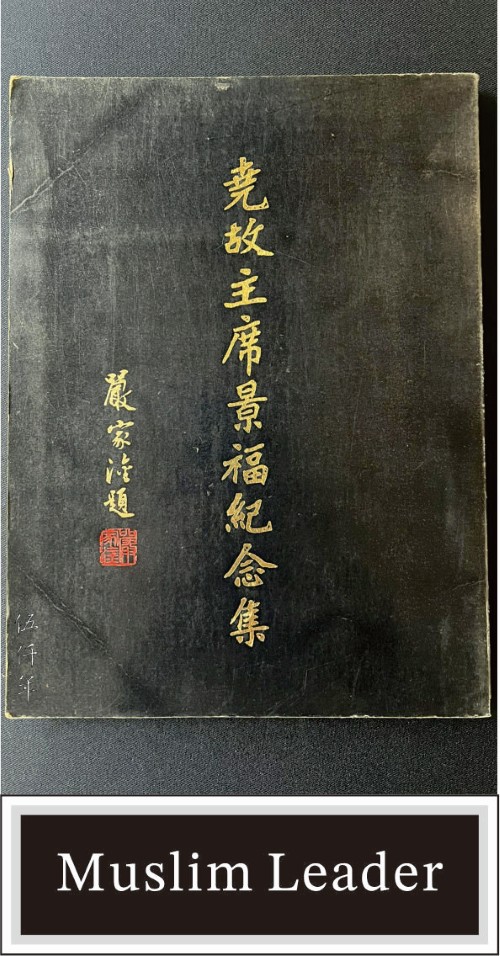 堯故主席景福紀念集
嚴家淦題
Muslim Leader